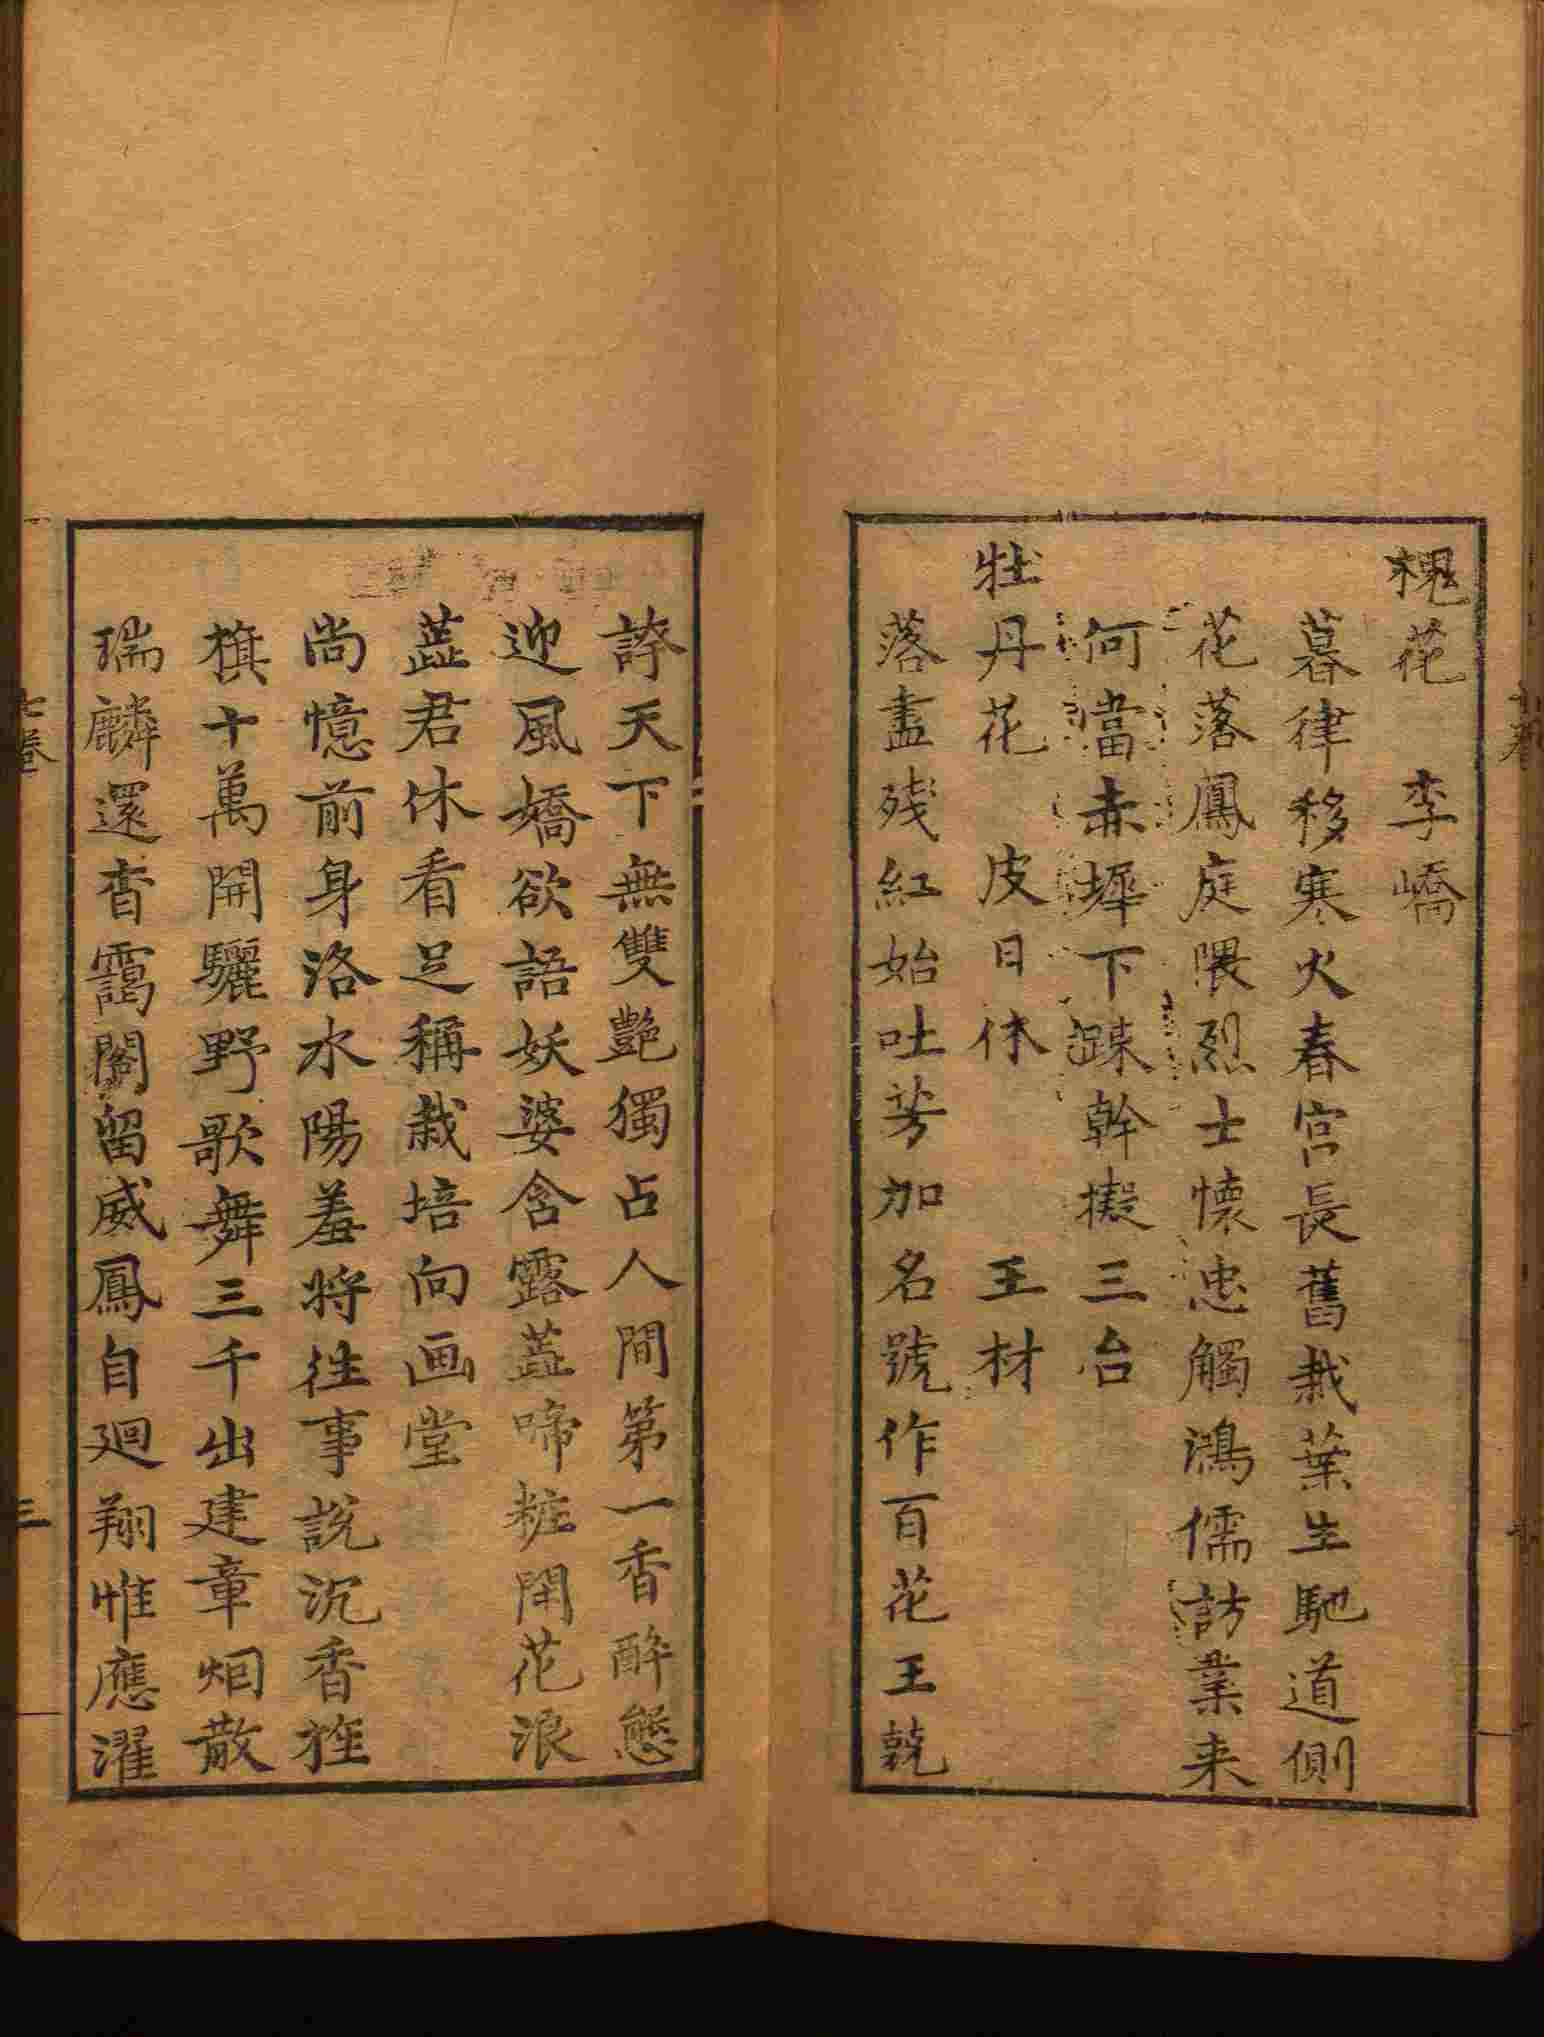 槐花　李嶠
暮律移寒火春宫長舊栽葉生馳道側
花落鳳庭隈烈士懷忠觸鴻儒訪業来
何當赤墀下踈幹擬三台
牡丹花　皮日休　王材
落盡残紅始吐芳加名號作百花王競
誇天下無雙艷獨占人間第一香醉態
迎風嬌欲語妖姿含露蕋啼粧閑花浪
蕋君休看足稱栽培向画堂
尚憶前身洛水陽羞將往事說沉香旌
旗十萬開驪野歌舞三千出建章烟散
瑞麟還杳靄閣留威鳳自廻翔惟應濯
七卷
三